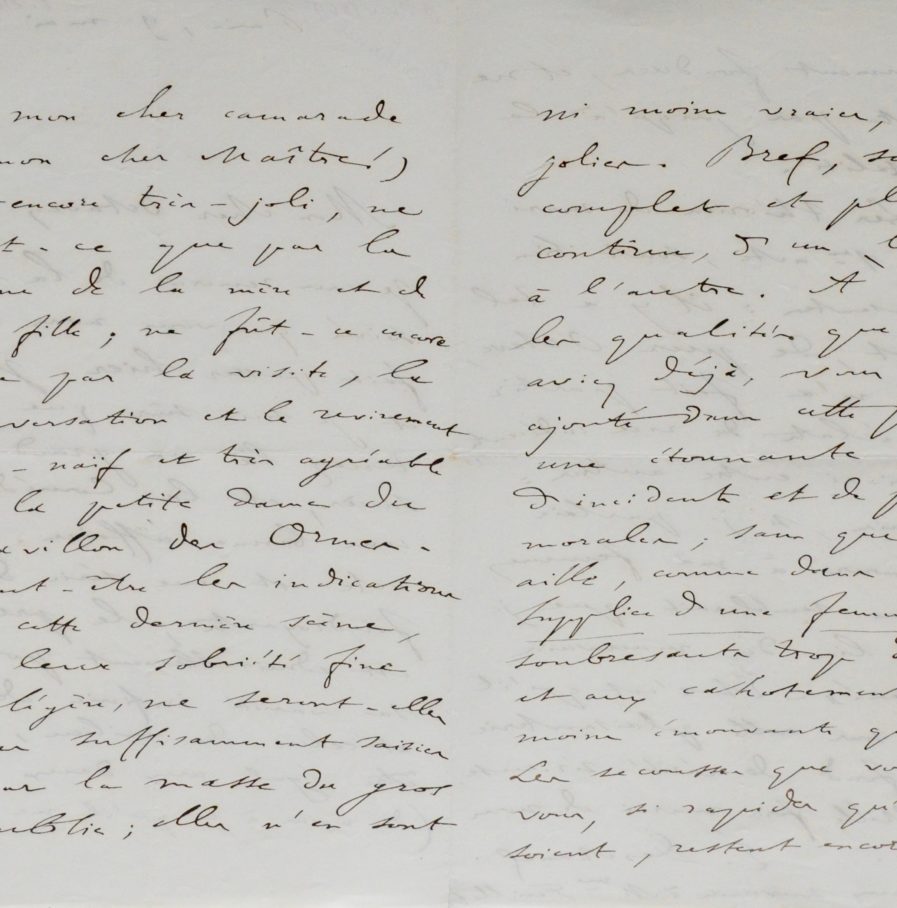 mon cher camarade
mon cher Maître!)
encore très-joli, ne
t-ce que par la
ne de la mère et de
fille; ne fût-ce encore
e par la visite, la
versation et le revirement
-naïf et très agréable
la petite dame du
villon des Ormes.
ut-être les indications
cette dernière scène,
leur sobriété fine
légère, ne seront-elles
suffisamment saisies
ar la masse du gros
ublic; elles n'en sont
ni moins vraies,
jolies. Bref,
complet et pl
continu, d'un
à l'autre. À
les qualités que
aviez déjà, vous
ajouté dans cette
une étonnante
d'incidents et de p
morales; sans que
aille, comme dans
Supplice d'une femm
soubresauts trop
et aux cahotement
moins émouvants q
Les secousses que vo
vous, si rapides qu'
soient, restent encor